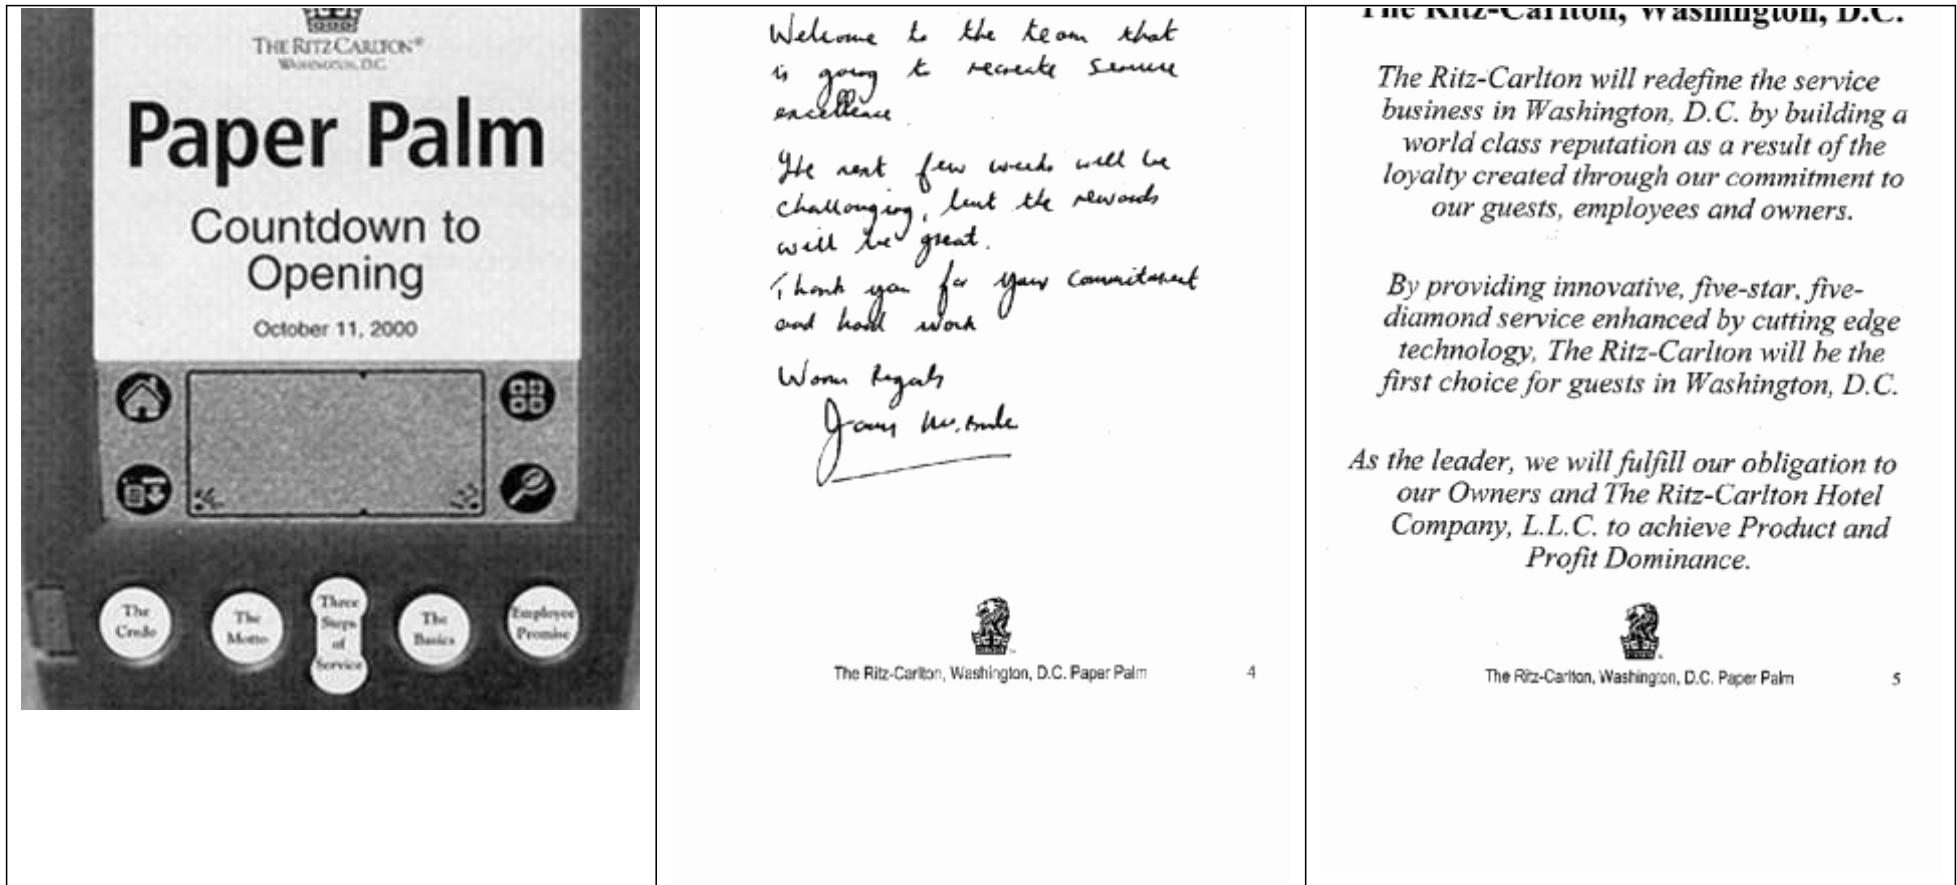 THE RITZ-CARLTON®
WASHINGTON, D.C.
Paper Palm
Countdown to
Opening
October 11, 2000
The
Credo
The
Motto
Three
Steps
of
Service
The
Basics
Employee
Promise
Welcome to the team that
is going to recreate service
excellence.
The next few weeks will be
challenging, but the rewards
will be great.
Thank you for your commitment
and hard work
Warm Regards
The Ritz-Carlton, Washington, D.C. Paper Palm 4
The Ritz-Carlton, Washington, D.C.
The Ritz-Carlton will redefine the service
business in Washington, D.C. by building a
world class reputation as a result of the
loyalty created through our commitment to
our guests, employees and owners.
By providing innovative, five-star, five-
diamond service enhanced by cutting edge
technology, The Ritz-Carlton will be the
first choice for guests in Washington, D.C.
As the leader, we will fulfill our obligation to
our Owners and The Ritz-Carlton Hotel
Company, L.L.C. to achieve Product and
Profit Dominance.
The Ritz-Carlton, Washington, D.C. Paper Palm 5